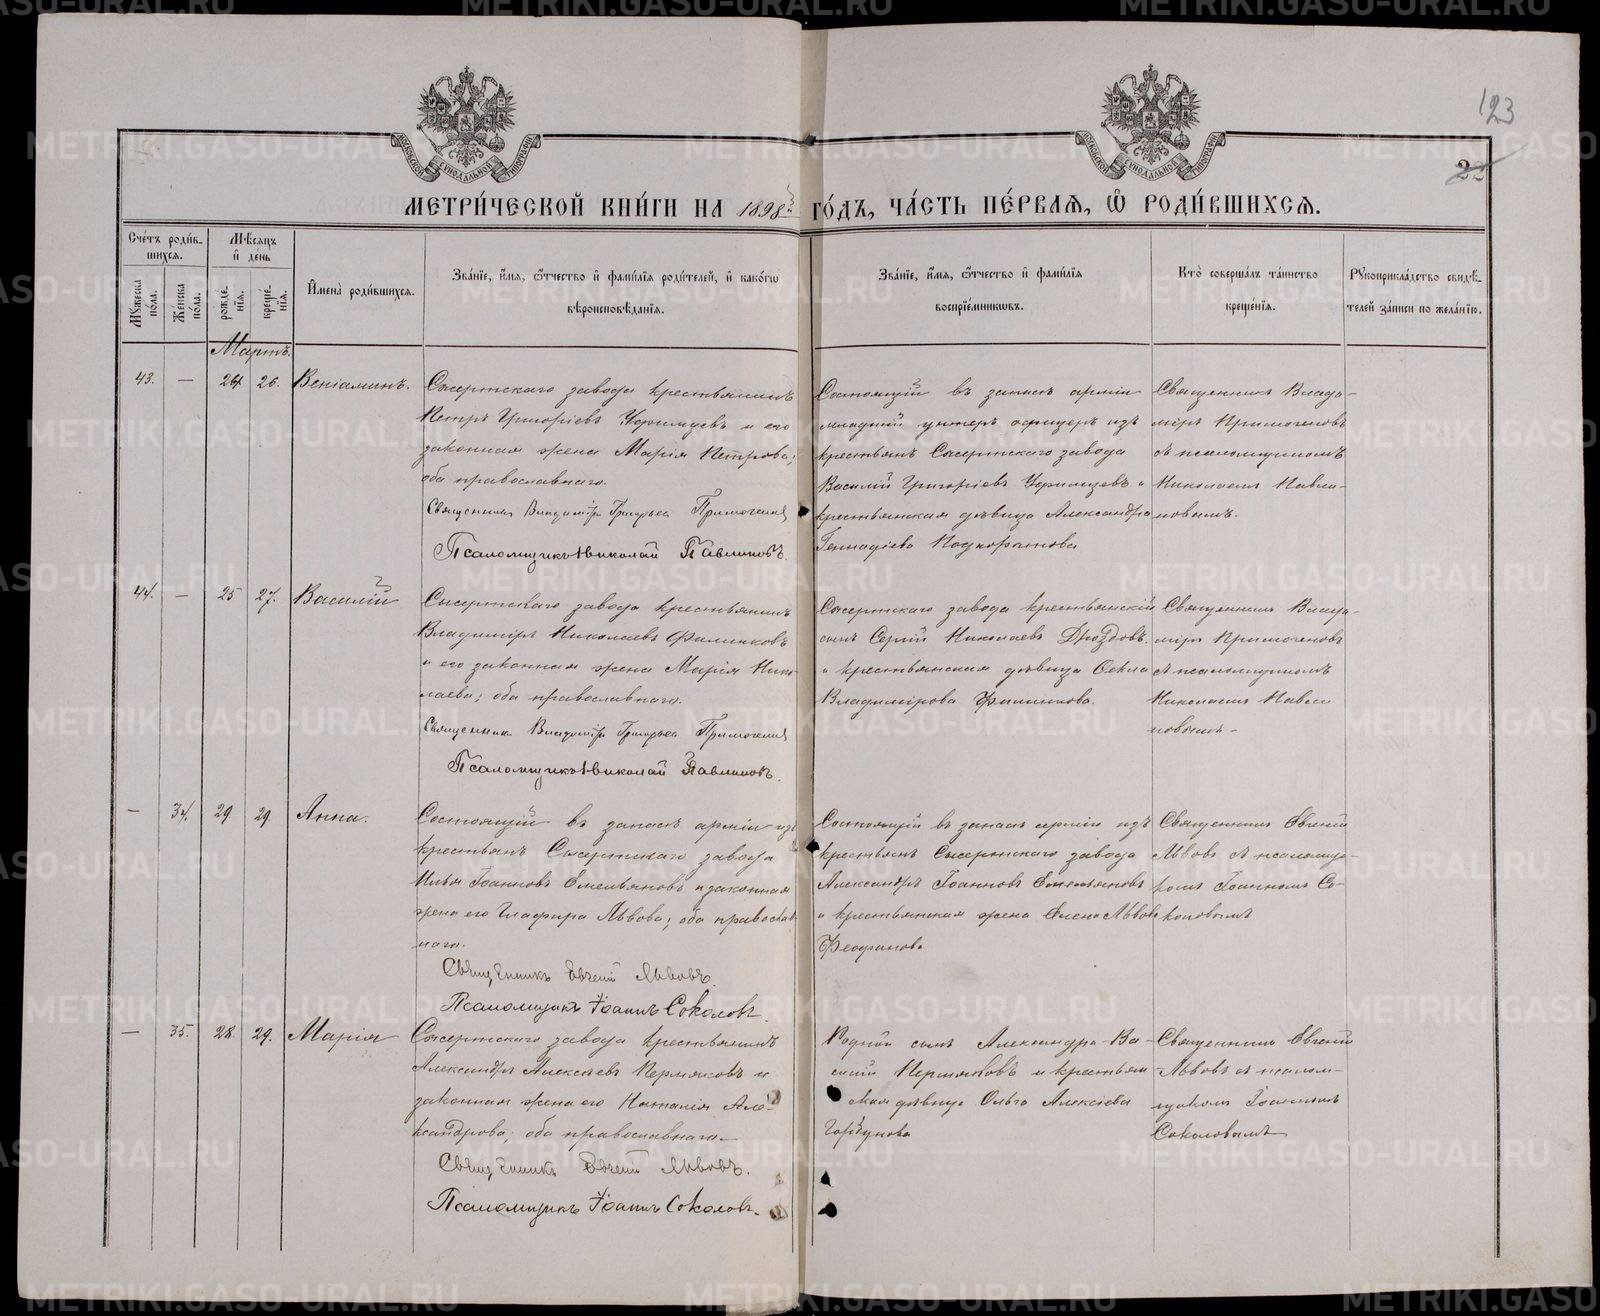 123
22
МОСКОВСКОЙ СѴНОДАЛЬНОЙ ТИПОГРАФІИ
МОСКОВСКОЙ СѴНОДАЛЬНОЙ ТИПОГРАФІИ
МЕТРИ́ЧЕСКОЙ КНИ́ГИ НА 1898й ГО́ДЪ, ЧА́СТЬ ПЕ́РВАЯ, Ѡ РОДИ́ВШИХСЯ.
Сче́тъ роди́в-
шихся.
Мѣсяцъ
и день
Му́жеска
по́ла.
Же́нска
по́ла.
рожде-
нія.
креще-
нія.
Имена̀ роди́вшихся.
Зва́ніе, и́мя, о́тчество и фами́лія роди́телей, и како́гѡ
вѣроисповѣ́данія.
Зва́ніе, и́мя, о́тчество и фами́лія
воспріе́мниковъ.
Кто̀ соверша́лъ та́инство
креще́нія.
Рукоприкла́дство свидѣ́-
телей за́писи по жела́нію.
Мартъ.
43. — 24 26. Веніаминъ.
Сысертскаго завода крестьянинъ
Петръ Григоріевъ Уфимцевъ и его
законная жена Марія Петрова;
оба православнаго.
Священникъ Владиміръ
Псаломщикъ Николай Павлиновъ.
Состоящій въ запасѣ арміи
младшій унтеръ офицеръ изъ
крестьянъ Сысертскаго завода
Василій Григоріевъ Уфимцевъ и
крестьянская дѣвица Александра
Геннадіева Подкорытова
Священникъ Влади-
міръ Примогеновъ
съ псаломщикомъ
Николаемъ Павли-
новымъ.
44. — 25 27. Василій
Сысертскаго завода крестьянинъ
Владиміръ Николаевъ Филинковъ
и его законная жена Марія Нико-
лаева; оба православнаго.
Священникъ Владиміръ
Псаломщикъ Николай Павлиновъ.
Сысертскаго завода крестьянскій
сынъ Сергій Николаевъ Дроздовъ
и крестьянская дѣвица Ѳекла
Владимірова Филинкова.
Священникъ Влади-
міръ Примогеновъ
съ псаломщикомъ
Николаемъ Павли
новымъ-
— 34. 29 29. Анна.
Состоящій въ запасѣ арміи изъ
крестьянъ Сысертскаго завода
Илья Іоанновъ Емельяновъ и законная
жена его Глафира Львова; оба православ
наго.
Священникъ Евгеній Львовъ.
Псаломщикъ Іоаннъ Соколовъ.
Состоящій въ запасѣ арміи изъ
крестьянъ Сысертскаго завода
Александръ Іоанновъ Емельяновъ
и крестьянская жена Елена Львова
Феофанова
Священникъ Евгеній
Львовъ съ псаломщи-
комъ Іоанномъ Со-
коловымъ
— 35. 28. 29. Марія
Сысертскаго завода крестьянинъ
Александръ Алексѣевъ Пермяковъ и
законная жена его Наталія Але-
ксандрова; оба православнаго.
Священникъ Евгеній Львовъ.
Псаломщикъ Іоаннъ Соколовъ.
Родной сынъ Александра Ва-
силій Пермяковъ и крестьян
ская дѣвица Ольга Алексіева
Горбунова
Священникъ Евгеній
Львовъ съ псалом-
щикомъ Іоанномъ
Соколовымъ
METRIKI.GASO-URAL.RU